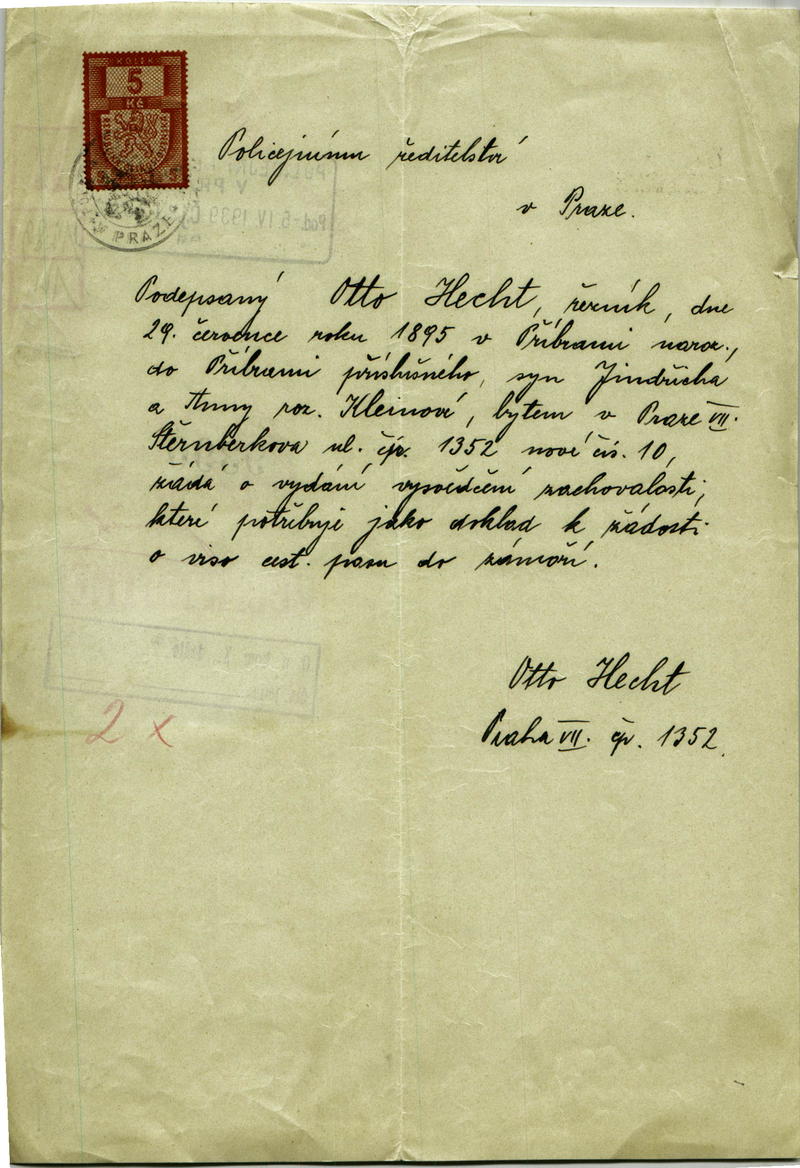 KOLEK
5
Kč
Policejnímu ředitelství
v Praze.
V PRAZE
Podepsaný Otto Hecht, řezník, dne
29. července roku 1895 v Příbrami naroz.,
do Příbrami příslušného, syn Jindřicha
a Anny roz. Kleinové, bytem v Praze VII.
Šternberkova ul. čp. 1352 nové čís. 10,
žádá o vydání vysvědčení zachovalosti,
které potřebuje jako doklad k žádosti
o viso cest. pasu do zámoří.
Otto Hecht
Praha VII. čp. 1352.
2 x